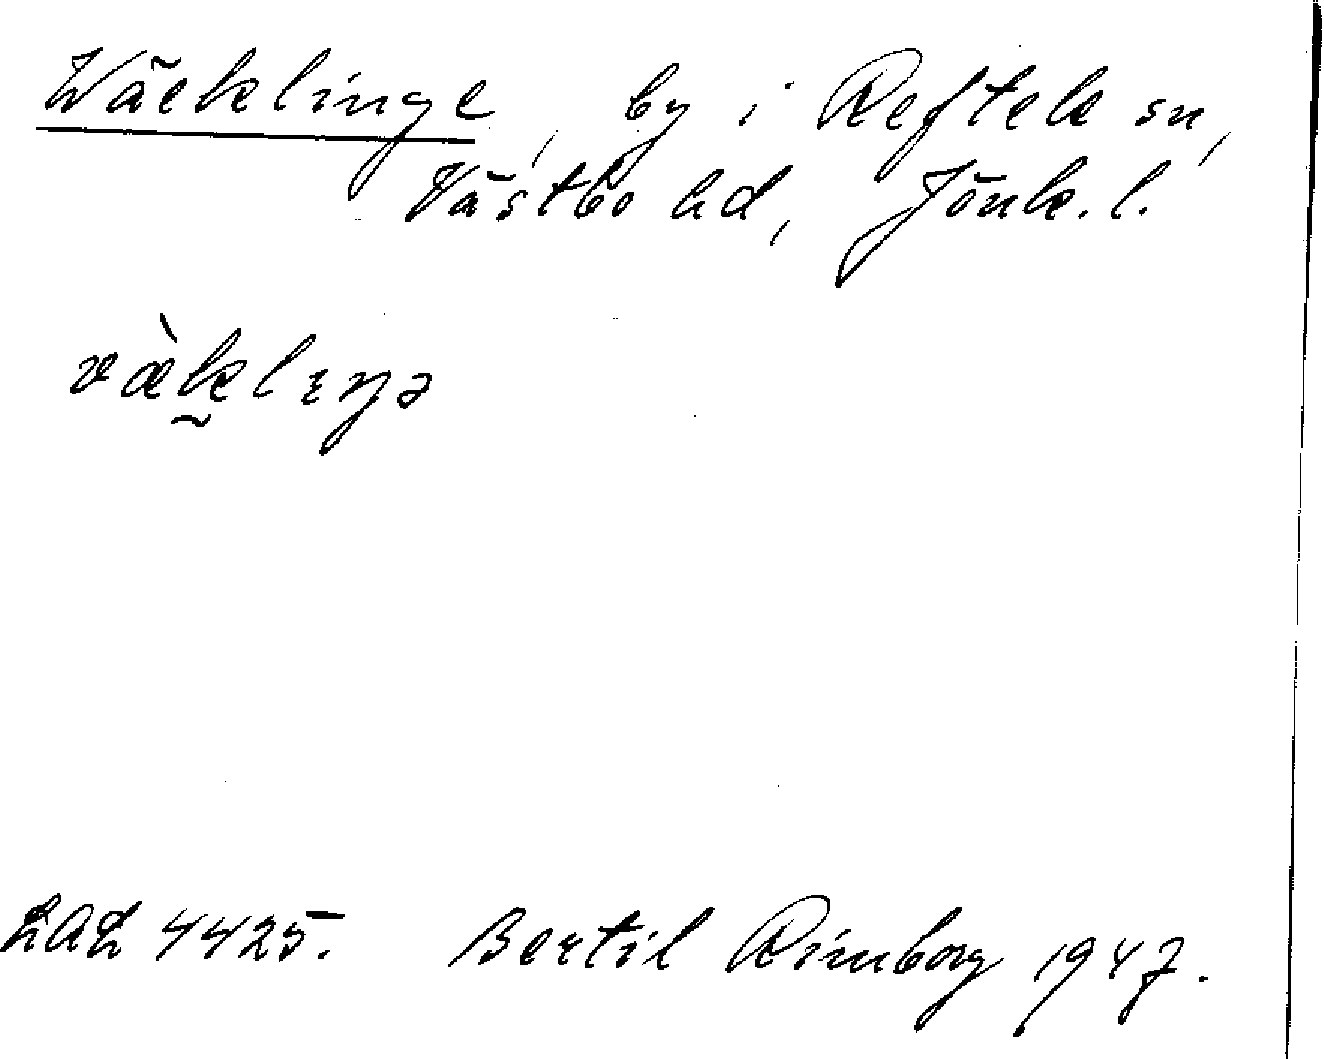 Wäcklinge, by i Reftele sn,
Västbo hd, Jönk. l.
væ̀k̰lɪŋə
LAL 4425. Bertil Rimborg 1947.